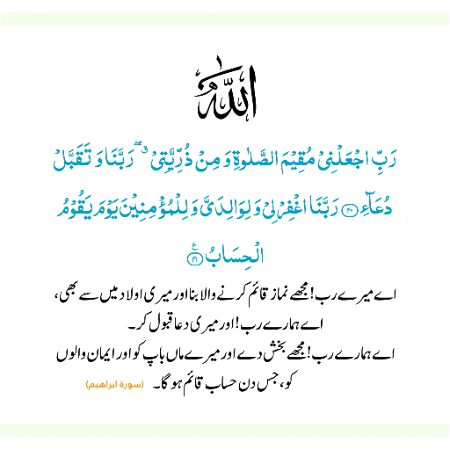 الله
رَبِّ اجْعَلْنِیْ مُقِیْمَ الصَّلٰوةِ وَ مِنْ ذُرِّیَّتِیْ ۖۗ رَبَّنَا وَ تَقَبَّلْ
دُعَآءِ ۝۴۰ رَبَّنَا اغْفِرْ لِیْ وَ لِوَالِدَیَّ وَ لِلْمُؤْمِنِیْنَ یَوْمَ یَقُوْمُ
الْحِسَابُ ۝۴۱ ع
اے میرے رب! مجھے نماز قائم کرنے والا بنا اور میری اولاد میں سے بھی،
اے ہمارے رب! اور میری دعا قبول کر۔
اے ہمارے رب! مجھے بخش دے اور میرے ماں باپ کو اور ایمان والوں
کو، جس دن حساب قائم ہو گا۔ (سورة ابراهيم)